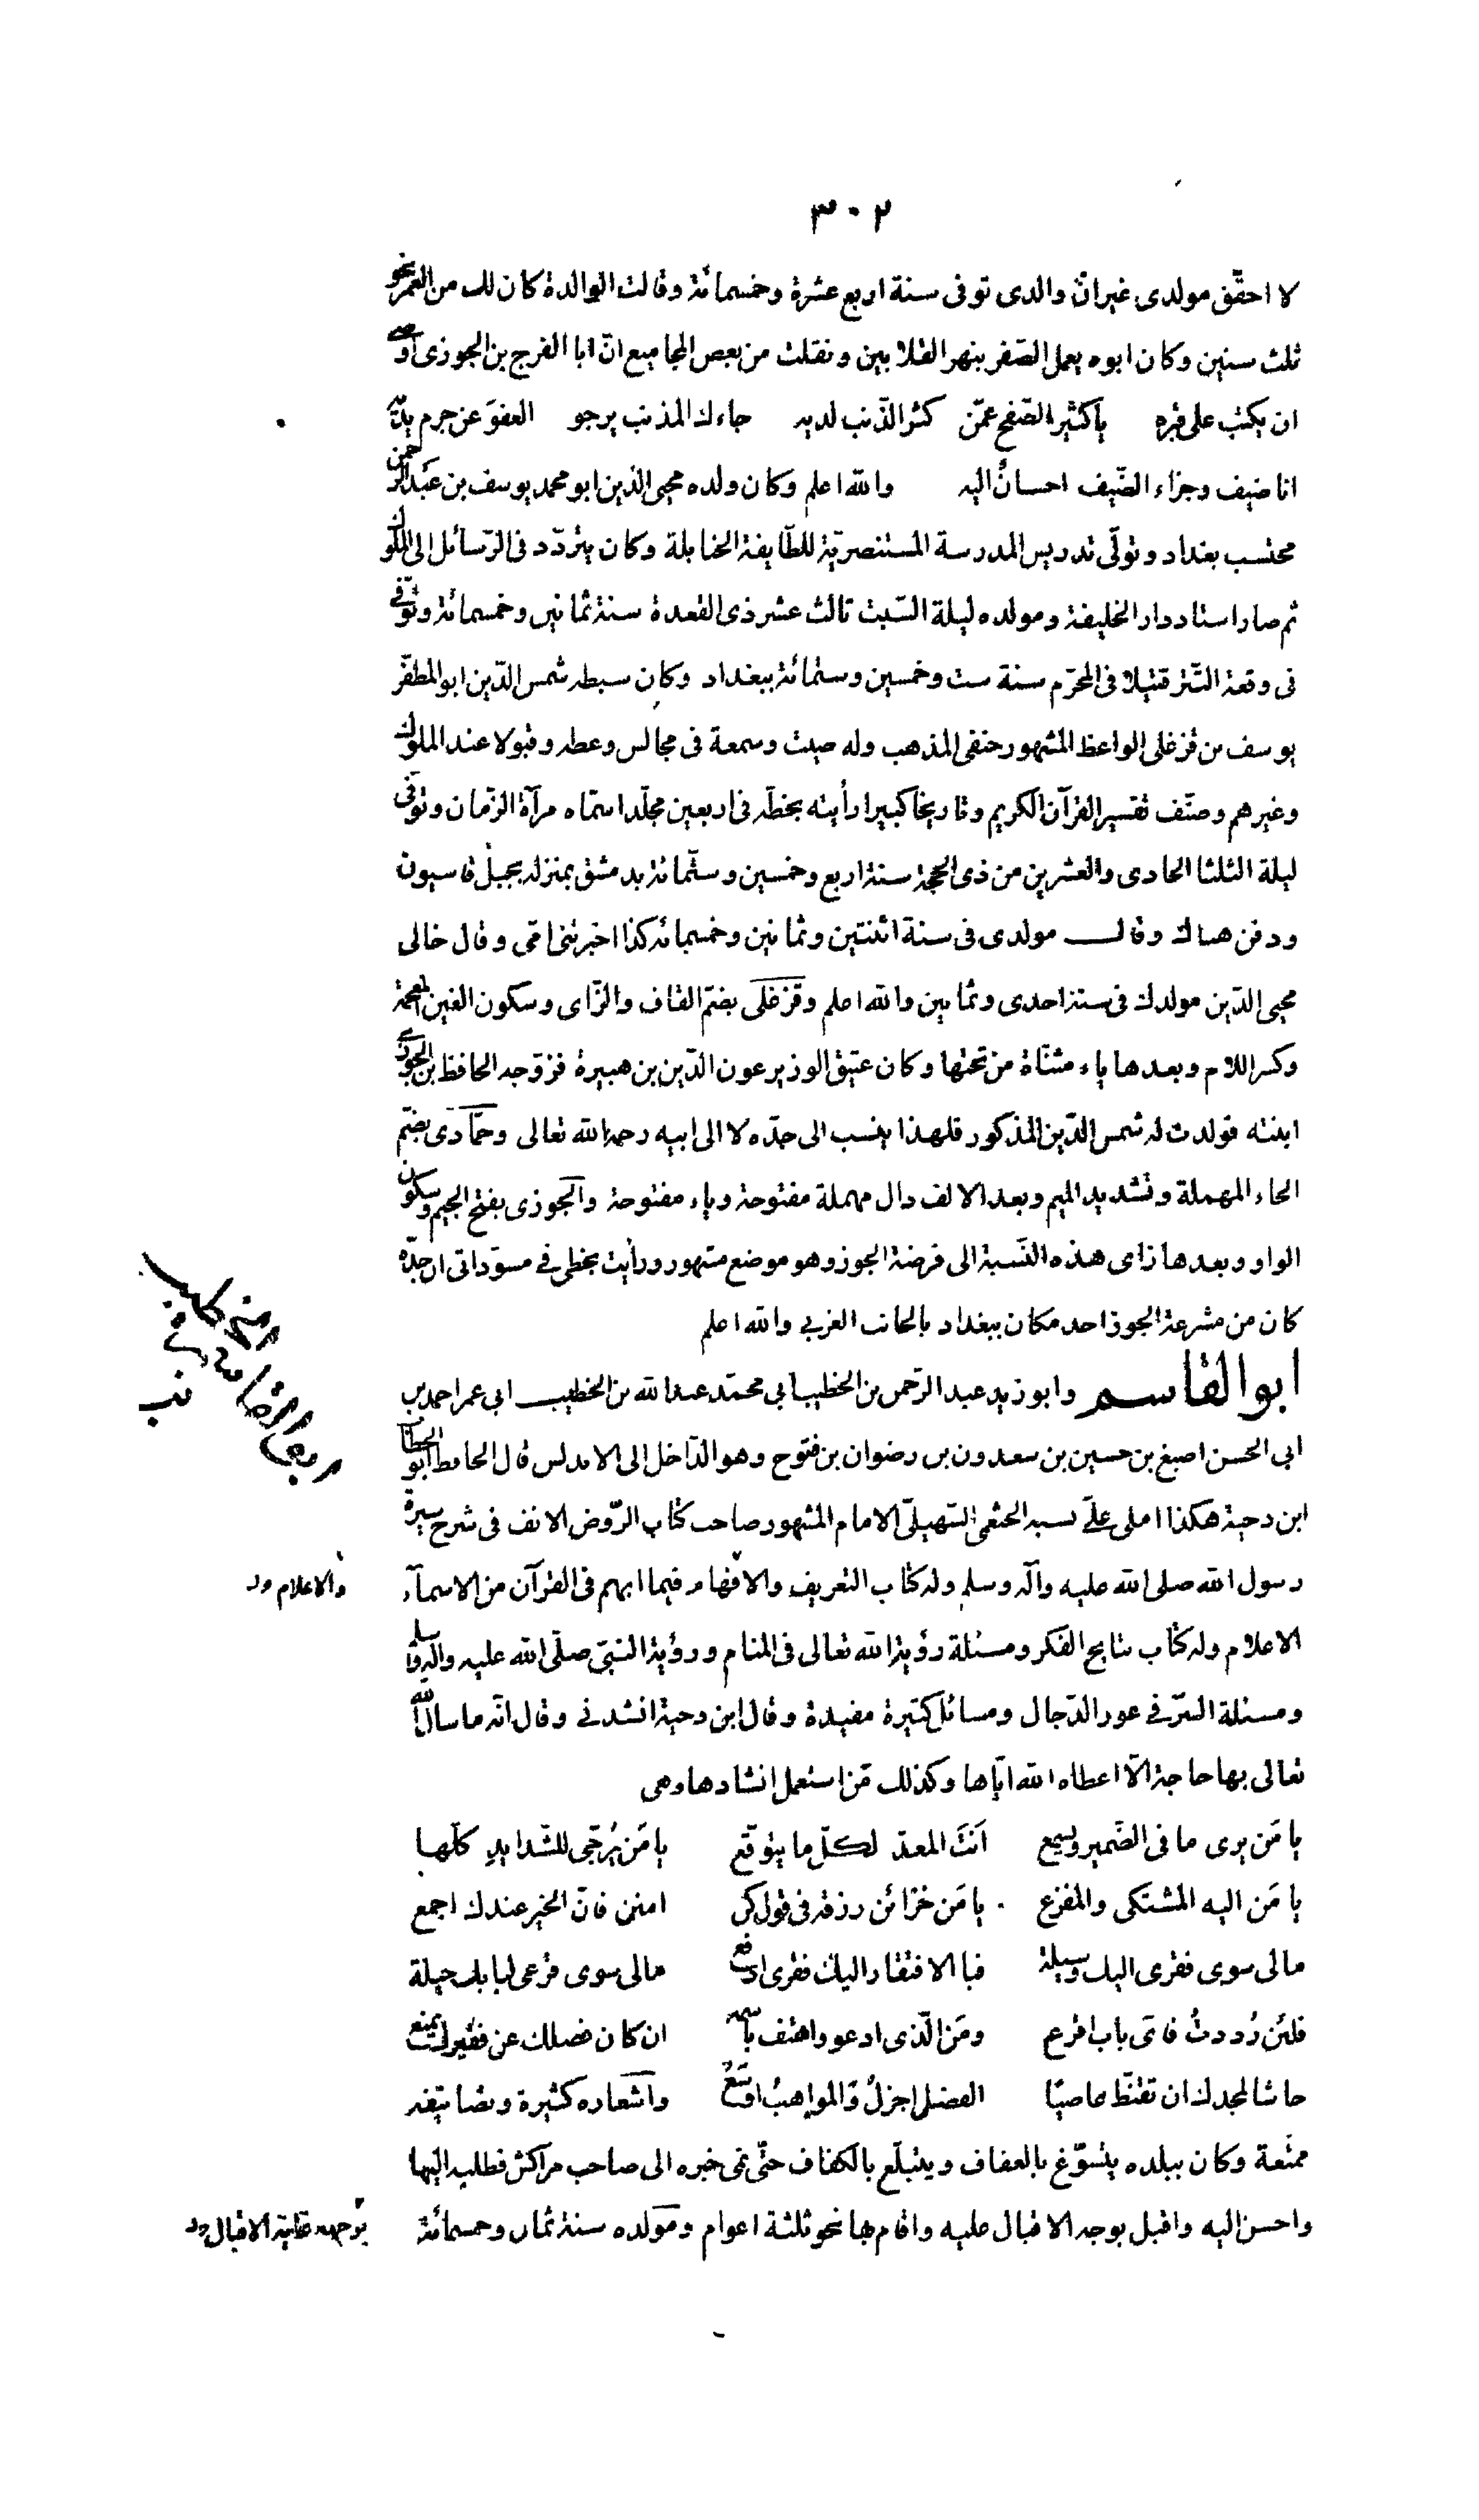 ٣٠٢
لا احقّق مولدى غير انّ والدى توفى سنة اربع عشرة وخمسمائة وقالت الوالدة كان لك من العمر نحو
ثلث سنين وكان ابوه يعمل الصّفر بنهر القلايين ونقلت من بعض المجاميع انّ ابا الفرج بن الجوزى اوصى
ان يكتب على قبره يا كثير الصّفح عمّن كثر الذّنب لديه جاءك المذنب يرجو العفوَ عن جرم يديه
انا ضيف وجزاء الضّيف احسانٌ اليه والله اعلم وكان ولده محيى الدّين ابو محمد يوسف بن عبد الرحمن
محتسب بغداد وتولّى تدريس المدرسة المستنصريّة للطّايفة الحنابلة وكان يتردّد فى الرّسائل الى الملوك
ثم صار استاد دار الخليفة ومولده ليلة السّبت ثالث عشر ذى القعدة سنة ثمانين وخمسمائة وتوفّى
فى وقعة التّتر قتيلا فى المحرّم سنة ست وخمسين وستمائة ببغداد وكان سبطه شمس الدّين ابو المظفّر
يوسف بن قزغلى الواعظ المشهور حنفى المذهب وله صيت وسمعة فى مجالس وعظه وقبولا عند الملوك
وغيرهم وصنّف تفسير القرآن الكريم وتاريخا كبيرا رأيته بخطّه فى اربعين مجلّدا سمّاه مرآة الزّمان وتوفّى
ليلة الثلثا الحادى والعشرين من ذى الحجّة سنة اربع وخمسين وستّمائة بدمشق بمنزله بجبل قاسيون
ودفن هناك وقال مولدى فى سنة اثنتين وثمانين وخمسمائه كذا اخبرتنى امّى وقال خالى
محيى الدّين مولدك فى سنة احدى وثمانين والله اعلم وقزغلى بضمّ القاف والزّاى وسكون الغين المعجمة
وكسر اللام وبعدها ياء مثنّاة من تحتها وكان عتيق الوزير عون الدّين بن هبيرة فزوّجه الحافظ بن الجوزى
ابنته فولدت له شمس الدّين المذكور فلهذا ينسب الى جدّه لا الى ابيه رحمه الله تعالى وحمّادى بضمّ
الحاء المهملة وتشديد الميم وبعد الالف دال مهملة مفتوحة وياء مفتوحة والجوزى بفتح الجيم وسكون
الواو وبعدها زاى هذه النّسبة الى فرضة الجوز وهو موضع مشهور ورأيت بخطى فى مسوّداتى ان جدّه
كان من مشرعة الجوز احد مكان ببغداد بالجانب الغربى والله اعلم
ابو القاسم وابو زيد عبد الرّحمن بن الخطيب ابى محمّد عبد الله بن الخطيب ابى عمر احمد بن
ابى الحسن اصبغ بن حسين بن سعدون بن رضوان بن فتوح وهو الدّاخل الى الاندلس قال الحافظ ابو الخطاب
ابن دحية هكذا املى علىّ نسبه الخثعمى السّهيلىّ الامام المشهور صاحب كتاب الرّوض الانف فى شرح سيرة
رسول الله صلى الله عليه وآله وسلم وله كتاب التعريف والافهام فيما ابهم فى القرآن من الاسمآء
والاعلام
الاعلام وله كتاب نتايج الفكر ومسئلة رؤية الله تعالى فى المنام ورؤية النبىّ صلّى الله عليه وآله وسلم
ومسئلة السّر فى عور الدّجال ومسائل كثيرة مفيدة وقال ابن دحية انشدنى وقال انّه ما سال الله
تعالى بها حاجة الّا اعطاه الله ايّاها وكذلك مَن استعمل انشادها وهى
يا مَن يرى ما فى الضّمير ويسمع اَنتَ المعدّ لكلّ ما يتوقّع يا مَن يُرجّى للشّدايدِ كلّها
يا مَن اليه المشتكى والمفزع يا مَن خزائن رزقه فى قول كن امنن فانّ الخير عندك اجمع
مالى سوى فقرى اليك وسيلة فبالافتقار اليك فقرى ادفع مالى سوى قرعى لبابك حيلة
فلئن رُددتُ فاىّ باب اقرع ومَن الّذى ادعو واهتف باسمه ان كان فضلك عن فقيرك يمنع
حاشا لمجدك ان تقنّط عاصيًا الفضل اجزلُ والمواهبُ اوسَعُ واشعاره كثيرة وتصانيفه
ممتّعة وكان ببلده يتسوّغ بالعفاف ويتبلّغ بالكفاف حتّى نمى خبره الى صاحب مرّاكش فطلبه اليها
واحسن اليه واقبل بوجه الاقبال عليه واقام بها نحو ثلثة اعوام ومولده سنة ثمان وخمسمائة
بوجهه غاية الاقبال